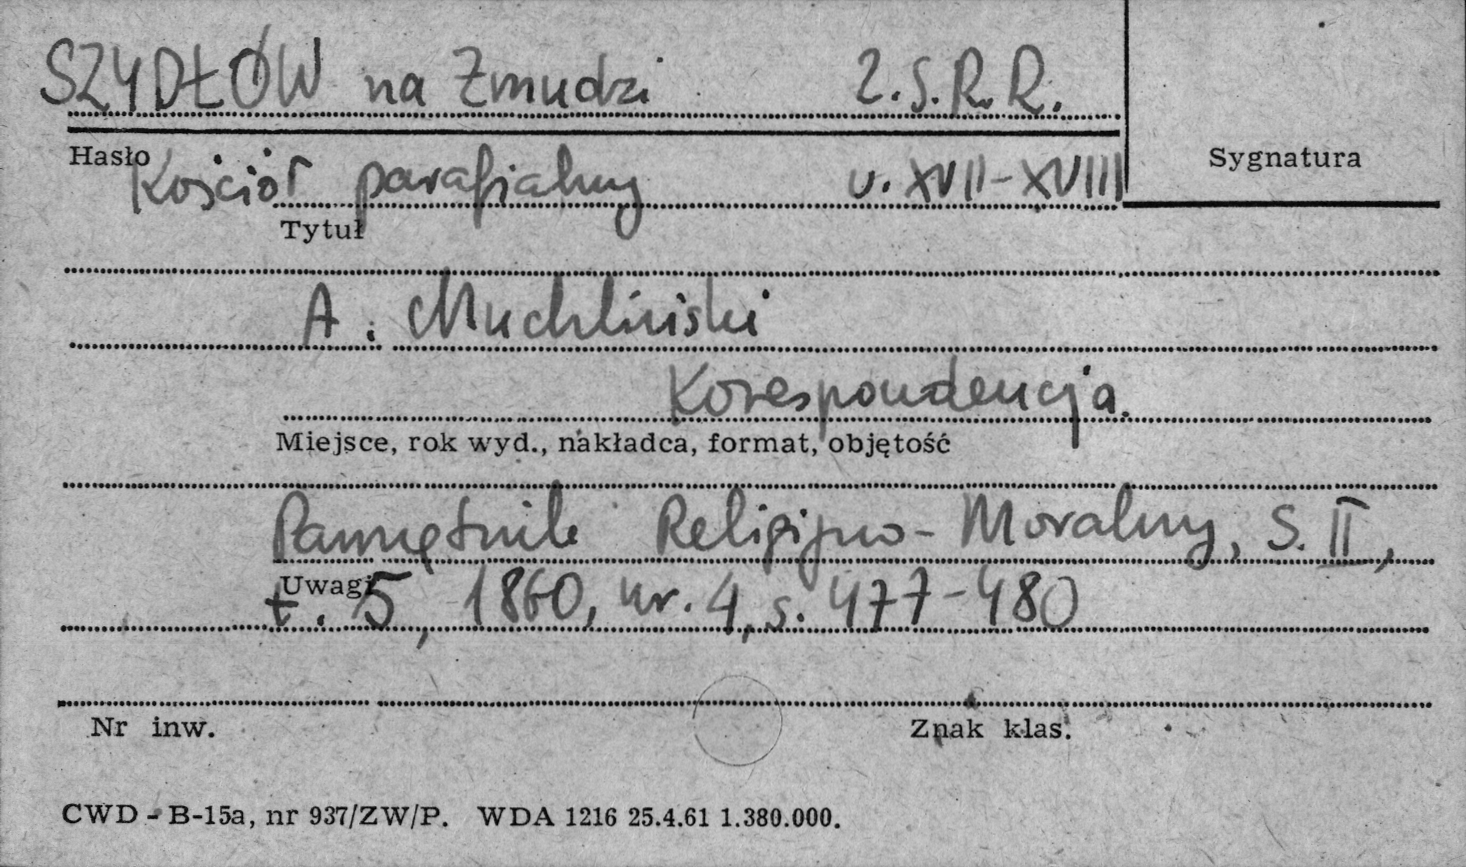 SZYDŁÓW na Żmudzi Z.S.R.R.
Hasło Sygnatura
Kościół parafialny w. XVII-XVIII
Tytuł
A. Muchliński
Korespondencja.
Miejsce, rok wyd., nakładca, format, objętość
Pamiętnik Religijno-Moralny, S. II,
Uwagi
t. 5, 1860, nr. 4, s. 477-480
Nr inw. Znak klas.
CWD - B-15a, nr 937/ZW/P. WDA 1216 25.4.61 1.380.000.